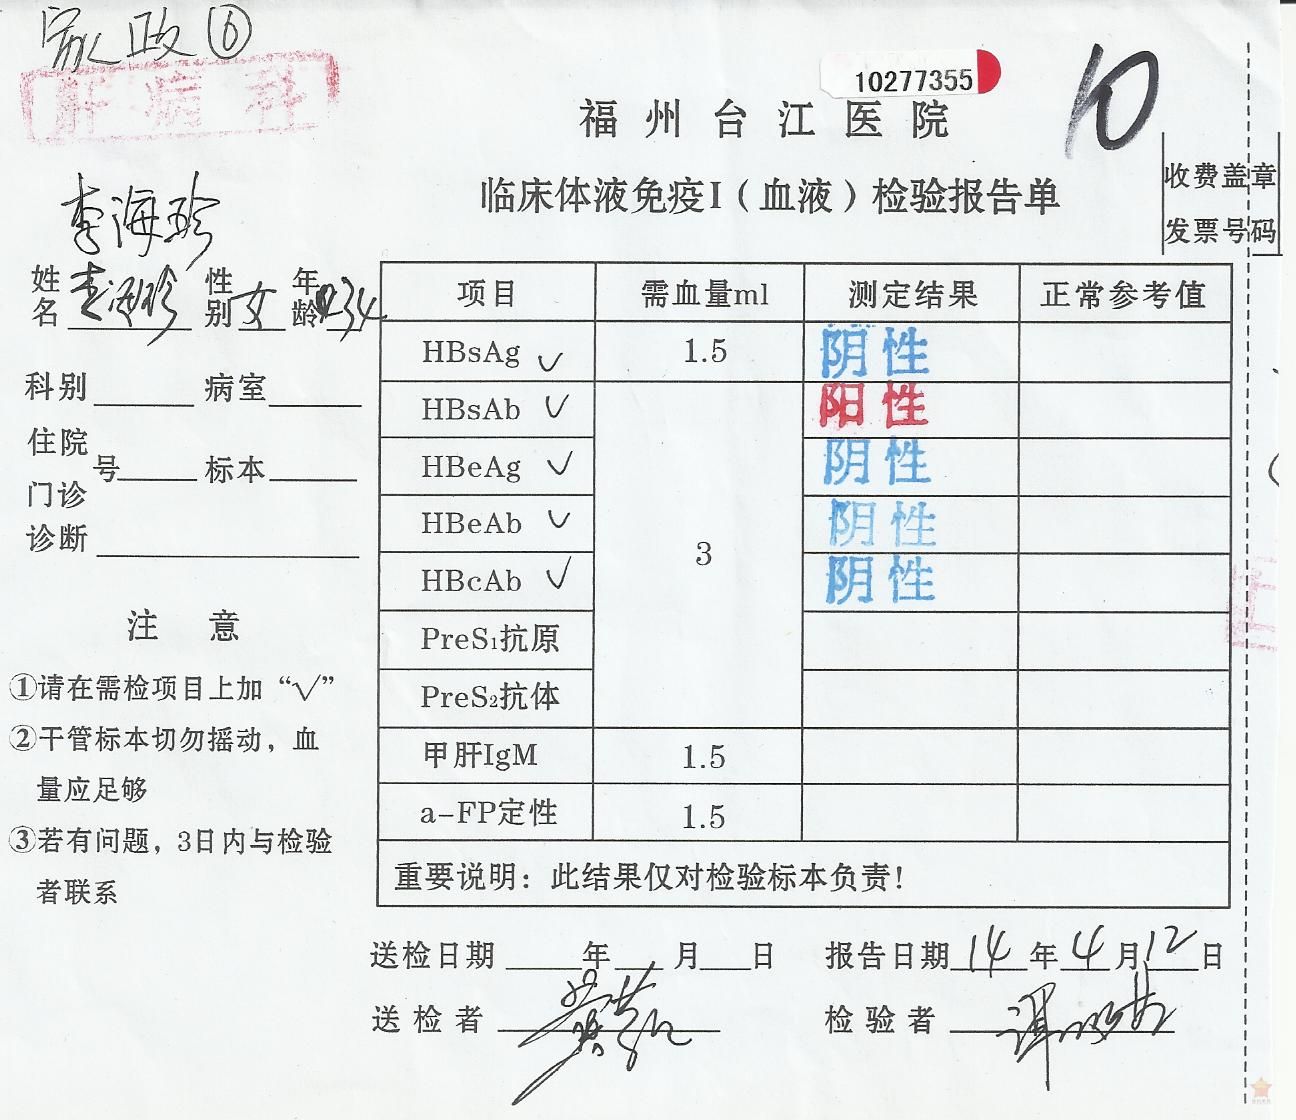 家政⑥
肝病科
10277355
10
福州台江医院
临床体液免疫I（血液）检验报告单
收费盖章
发票号码
李海珍
姓名 李海珍 性别 女 年龄 34
科别 病室
住院
号 标本
门诊
诊断
注意
①请在需检项目上加“√”
②干管标本切勿摇动，血
量应足够
③若有问题，3日内与检验
者联系
项目 需血量ml 测定结果 正常参考值
HBsAg √ 1.5 阴性
HBsAb √ 阳性
HBeAg √ 阴性
HBeAb √ 阴性
3
HBcAb √ 阴性
PreS₁抗原
PreS₂抗体
甲肝IgM 1.5
a-FP定性 1.5
重要说明：此结果仅对检验标本负责！
送检日期 年 月 日 报告日期 14 年 4 月 12 日
送检者 检验者